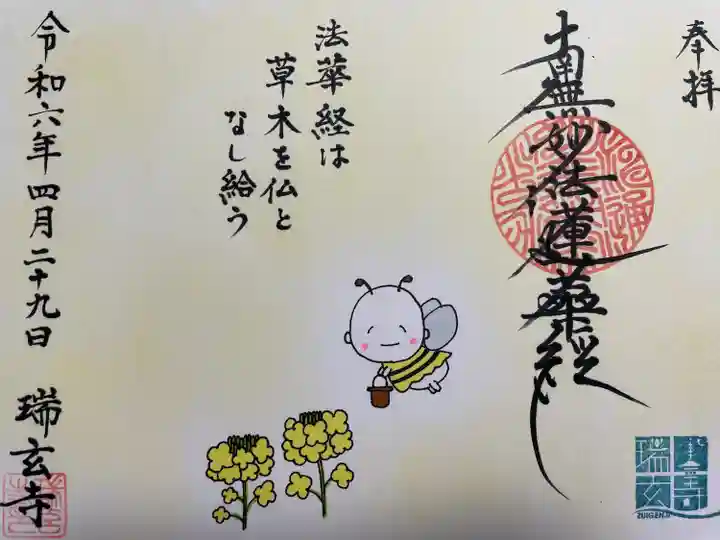 奉拝
南無妙法蓮華経
法華経は
草木を仏と
なし給う
令和六年四月二十九日
瑞玄寺
瑞玄寺
ZUIGENJI